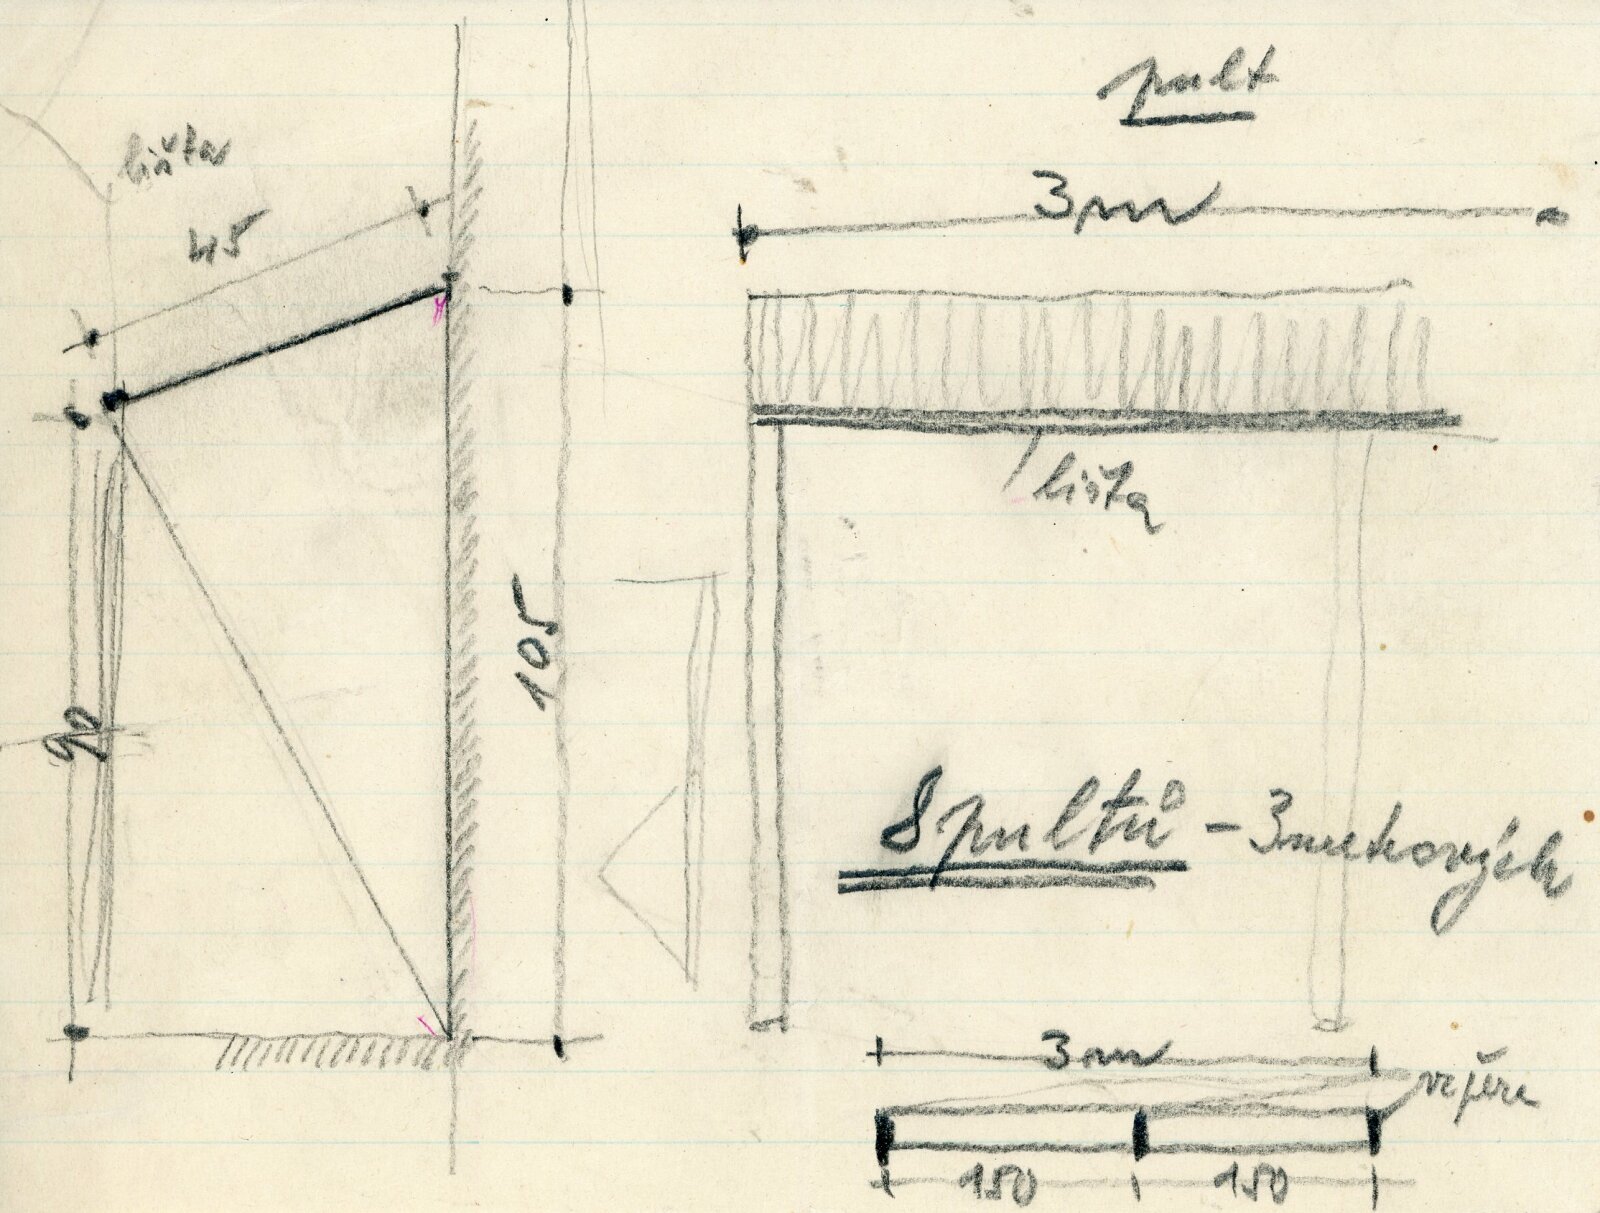 pult
lišta
3m
45
lišta
105
90
8 pultů - 3metrových
3m
vzpěra
150 150